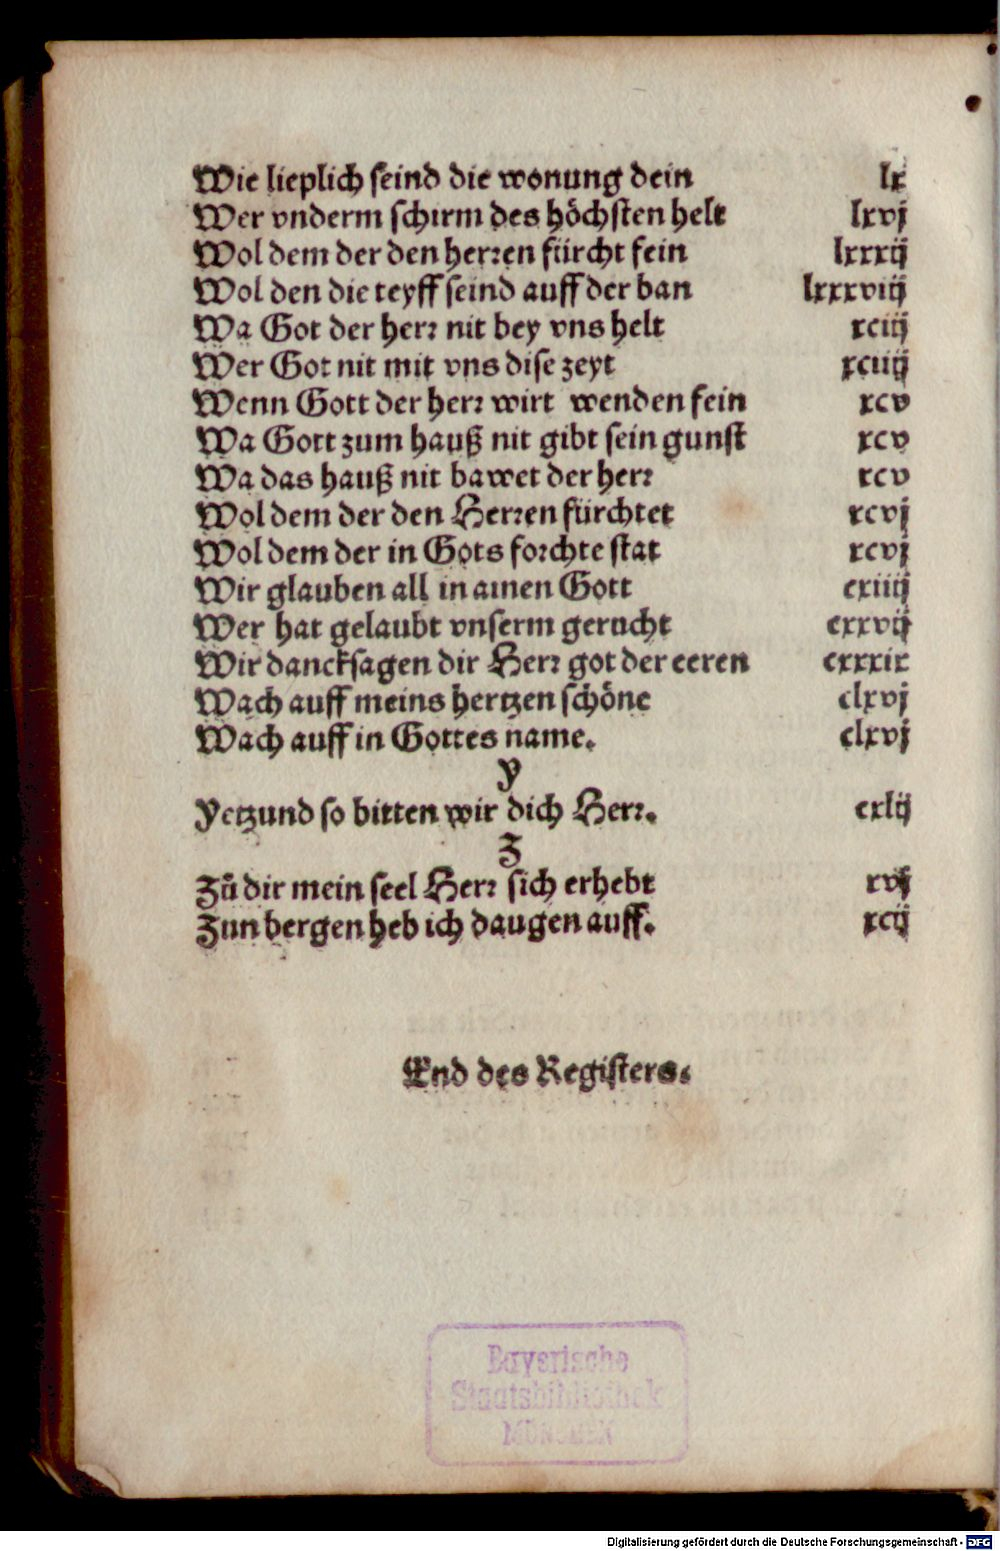 Wie lieplich seind die wonung dein lx
Wer vnderm schirm des höchsten helt lxvj
Wol dem der den herren fürcht fein lxxxij
Wol den die teyff seind auff der ban lxxxviij
Wa Got der herr nit bey vns helt xciij
Wer Got nit mit vns dise zeyt xciiij
Wenn Gott der herr wirt wenden fein xcv
Wa Gott zum hauß nit gibt sein gunst xcv
Wa das hauß nit bawet der herr xcv
Wol dem der den Herren fürchtet xcvj
Wol dem der in Gots forchte stat xcvj
Wir glauben all in ainen Gott cxiiij
Wer hat gelaubt vnserm gerucht cxxvij
Wir dancksagen dir Herr got der eeren cxxxix
Wach auff meins hertzen schöne clxvj
Wach auff in Gottes name. clxvj
Y
Yetzund so bitten wir dich Herr. cxlij
Z
Zů dir mein seel Herr sich erhebt xvj
Zun bergen heb ich daugen auff. xcij
End des Registers.
Bayerische
Staatsbibliothek
MÜNCHEN
Digitalisierung gefördert durch die Deutsche Forschungsgemeinschaft - DFG